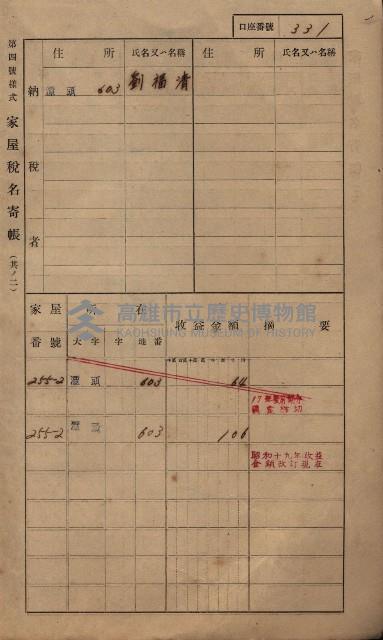 口座番號 331
第四號樣式 家屋稅名寄帳 (共ノ二)
納稅者
住所 氏名又ハ名稱 住所 氏名又ハ名稱
頭 603 劉福清
家屋番號 所在 收益金額 摘要
大字 字 地番
255-2 頭 603 64
255-2 603 106
昭和十九年收益
金額改訂現在
高雄市立歷史博物館
KAOHSIUNG MUSEUM OF HISTORY